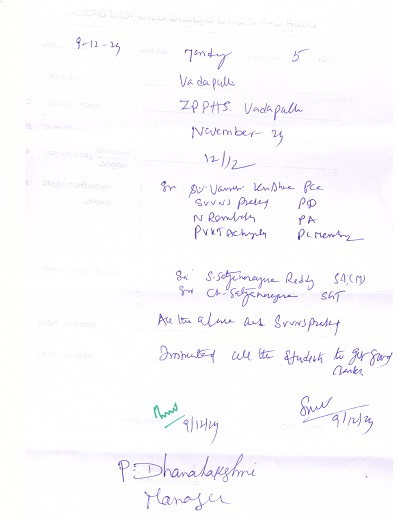 9-12-29 Monday 5
Vadapalli
ZPPHS. Vadapalli
November-29
12/12
Sri Vamsi Krishna PCC
SVVNS Prasad PD
N Rambabu PA
PVKT Acharyulu PL Member
Sri S. Satyanarayana Reddy SA(M)
Sri Ch. Satyanarayana SGT
All the above and SVVNS Prasad
Instructed all the students to get good
ranks
9/12/29
9/12/29
P. Dhanalakshmi
Manager